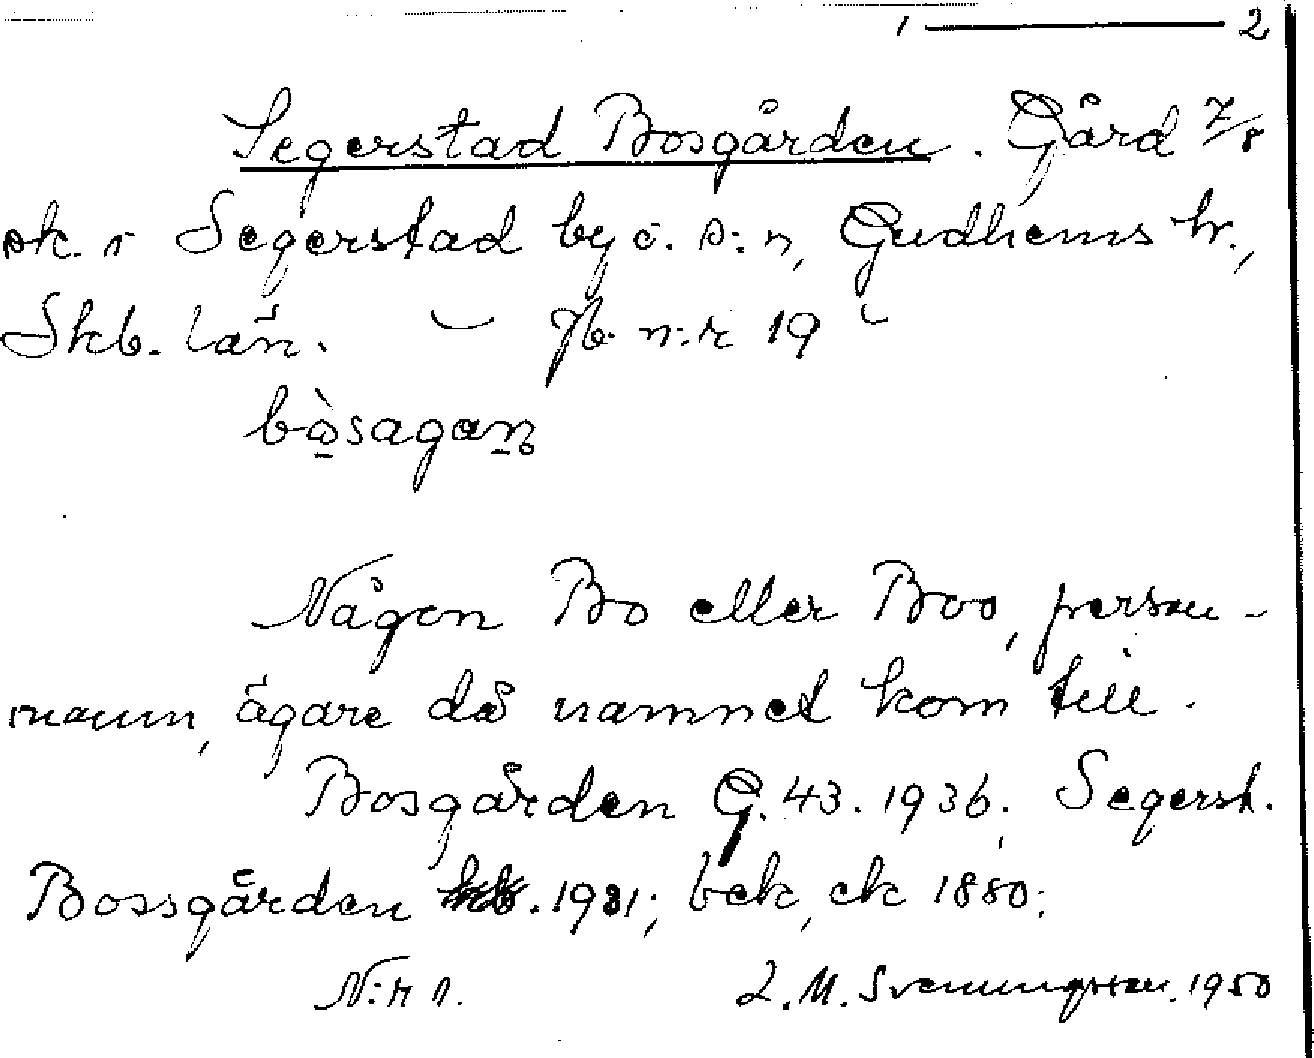 1 — 2
Segerstad Bosgården. Gård 7/8
sk. i Segerstad by o. s:n, Gudhems hr.,
Skb. län. — Jb. n:r 19 -
bò̱sagan̥
Någon Bo eller Boo, person-
namn, ägare då namnet kom till.
Bosgården G. 43. 1936; Segerst.
Bossgården kb. 1931; bek, ek 1880;
N:r 1. L. M. Svenungsson. 1950